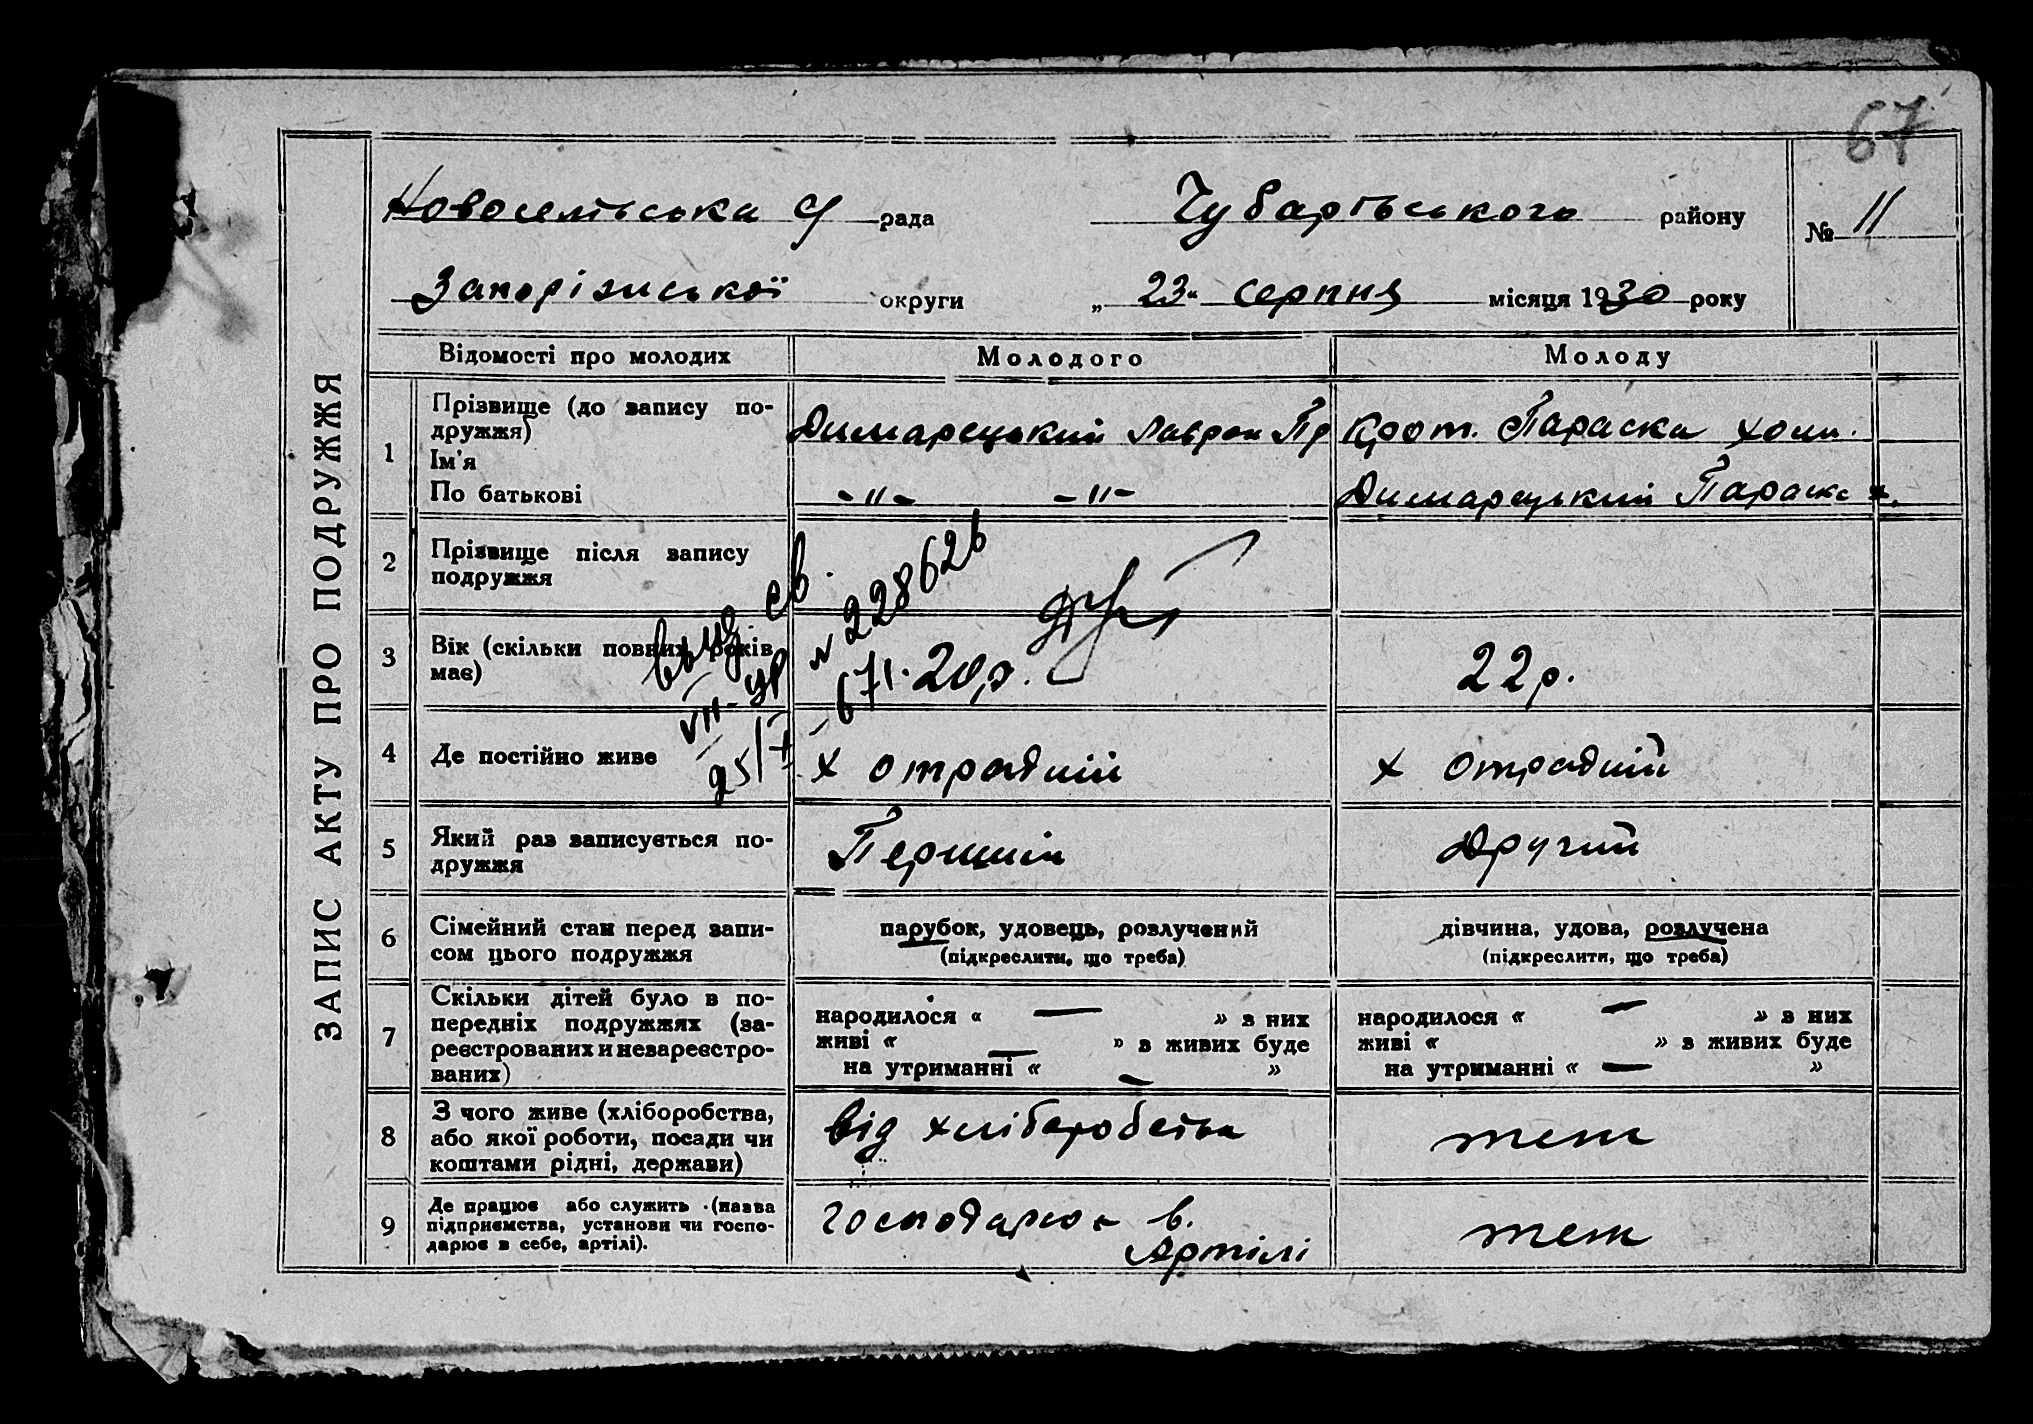 67
ЗАПИС АКТУ ПРО ПОДРУЖЖЯ
Новосельська с/ рада Чубарівського району № 11
Запорізської округи „ 23 “ серпня місяця 1930 року
Відомості про молодих Молодого Молоду
1 Прізвище (до запису по-
дружжя) Димарецький Лаврон Пр Крот. Параска Хом.
Ім'я
По батькові -"- -"- Димарецький Параска х.
2 Прізвище після запису
подружжя
выд. св. № 228626
VII-УР 671.
25/
3 Вік (скільки повних років
має) 20 р. 22 р.
4 Де постійно живе х отрадній х отрадній
5 Який раз записується по-
дружжя Перший Другий
6 Сімейний стан перед запи-
сом цього подружжя
парубок, удовець, розлучений
(підкреслити, що треба)
дівчина, удова, розлучена
(підкреслити, що треба)
7 Скільки дітей було в по-
передніх подружжях (за-
реєстрованих и незареєстро-
ваних)
народилося « — » з них
живі « — » з живих буде
на утриманні « — »
народилося « — » з них
живі « » з живих буде
на утриманні « — »
8 З чого живе (хліборобства,
або якої роботи, посади чи
коштами рідні, держави)
від хліборобства теж
9 Де працює або служить (назва
підприємства, установи чи госпо-
дарює в себе, артілі).
господарює в.
Артілі
теж